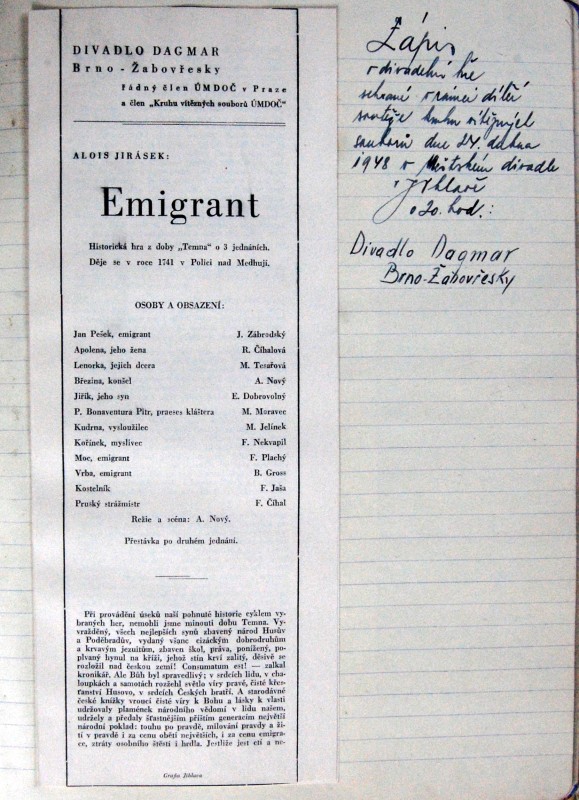 DIVADLO DAGMAR
Brno - Žabovřesky
řádný člen ÚMDOČ v Praze
a člen „Kruhu vítězných souborů ÚMDOČ“
ALOIS JIRÁSEK:
Emigrant
Historická hra z doby „Temna“ o 3 jednáních.
Děje se v roce 1741 v Polici nad Medhují.
OSOBY A OBSAZENÍ:
Jan Pešek, emigrant J. Zábrodský
Apolena, jeho žena R. Číhalová
Lenorka, jejich dcera M. Tesařová
Březina, konšel A. Nový
Jiřík, jeho syn E. Dobrovolný
P. Bonaventura Pitr, praeses kláštera M. Moravec
Kudrna, vysloužilec M. Jelínek
Kořínek, myslivec F. Nekvapil
Moc, emigrant F. Plachý
Vrba, emigrant B. Gross
Kostelník F. Jaša
Pruský strážmistr F. Číhal
Režie a scéna: A. Nový.
Přestávka po druhém jednání.
Při provádění úseků naší pohnuté historie cyklem vy-
braných her, nemohli jsme minouti dobu Temna. Vy-
vražděný, všech nejlepších synů zbavený národ Husův
a Poděbradův, vydaný všanc cizáckým dobrodruhům
a krvavým jezuitům, zbaven škol, práva, ponížený, po-
plvaný hynul na kříži, jehož stín krví zalitý, děsivě se
rozložil nad českou zemí! Consumatum est! — zalkal
kronikář. Ale Bůh byl spravedlivý; v srdcích lidu, v cha-
loupkách a samotách rozžehl světlo víry pravé, čisté křes-
ťanství Husovo, v srdcích Českých bratří. A starodávné
české knížky vroucí čisté víry k Bohu a lásky k vlasti
udržovaly plamének národního vědomí v lidu našem,
udržely a předaly šťastnějším příštím generacím největší
národní poklad: touhu po pravdě, milování pravdy a ži-
tí v pravdě i za cenu obětí největších, i za cenu emigra-
ce, ztráty osobního štěstí i hrdla. Jestliže jest ctí a ne-
Grafia Jihlava
Zápis
o divadelní hře
sehrané v rámci dílčí
soutěže kruhu vítězných
souborů dne 24. dubna
1948 v Městském divadle
v Jihlavě
o 20. hod.:
Divadlo Dagmar
Brno-Žabovřesky